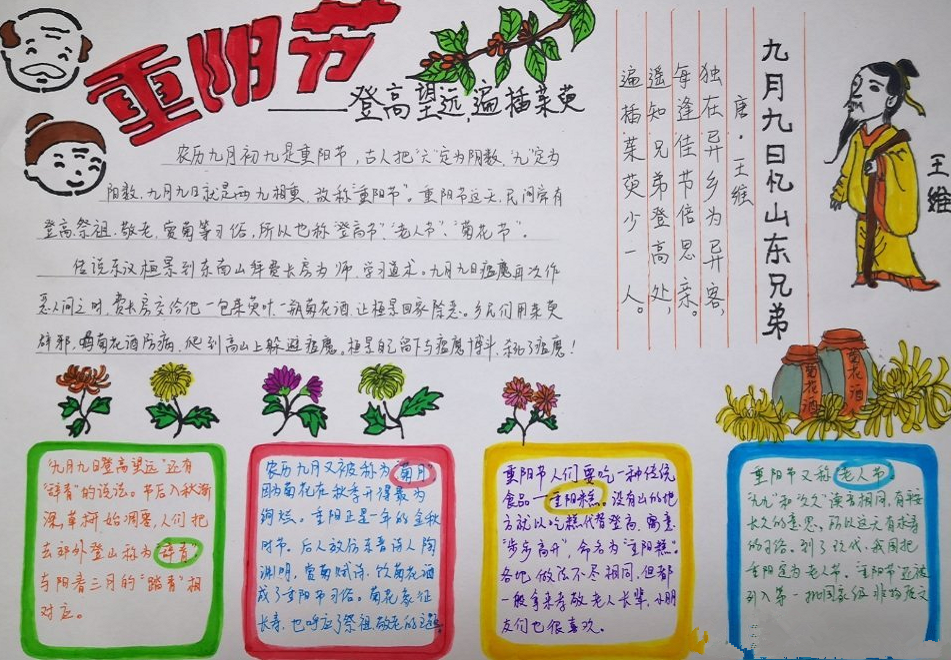 重阳节
——登高望远,遍插茱萸
农历九月初九是重阳节,古人把“六”定为阴数,“九”定为
阳数,九月九日就是两九相重,故称“重阳节”。重阳节这天,民间常有
登高、祭祖、敬老、赏菊等习俗,所以也称“登高节”、“老人节”、“菊花节”。
传说东汉桓景到东南山拜费长房为师,学习道术。九月九日瘟魔再次作
恶人间之时,费长房交给他一包茱萸叶,一瓶菊花酒,让桓景回家除恶。乡民们用茱萸
辟邪,喝菊花酒防病,爬到高山上躲避瘟魔。桓景自己留下与瘟魔博斗,杀死了瘟魔!
九月九日忆山东兄弟
唐·王维
独在异乡为异客,
每逢佳节倍思亲。
遥知兄弟登高处,
遍插茱萸少一人。
王维
菊花酒
菊花酒
“九月九日登高望远”还有
“辞青”的说法。节后入秋渐
深,草树始凋零,人们把
去郊外登山称为“辞青”,
与阳春三月的“踏青”相
对应。
农历九月又被称为“菊月”
因为菊花在秋季开得最为
绚烂。重阳正是一年的金秋
时节。后人效仿东晋诗人陶
渊明,赏菊赋诗,饮菊花酒
成了重阳节习俗。菊花象征
长寿,也呼应了祭祖敬老的主题。
重阳节人们要吃一种传统
食品—重阳糕。没有山的地
方就以吃糕代替登高,寓意
“步步高升”,命名为“重阳糕”。
各地做法不尽相同,但都
一般拿来孝敬老人长辈,小朋
友们也很喜欢。
重阳节又称老人节。
“九九”和“久久”读音相同,有
长久的意思,所以这天有求寿
的习俗。到了现代,我国把
重阳定为老人节。重阳节还被
列入第一批国家级非物质文